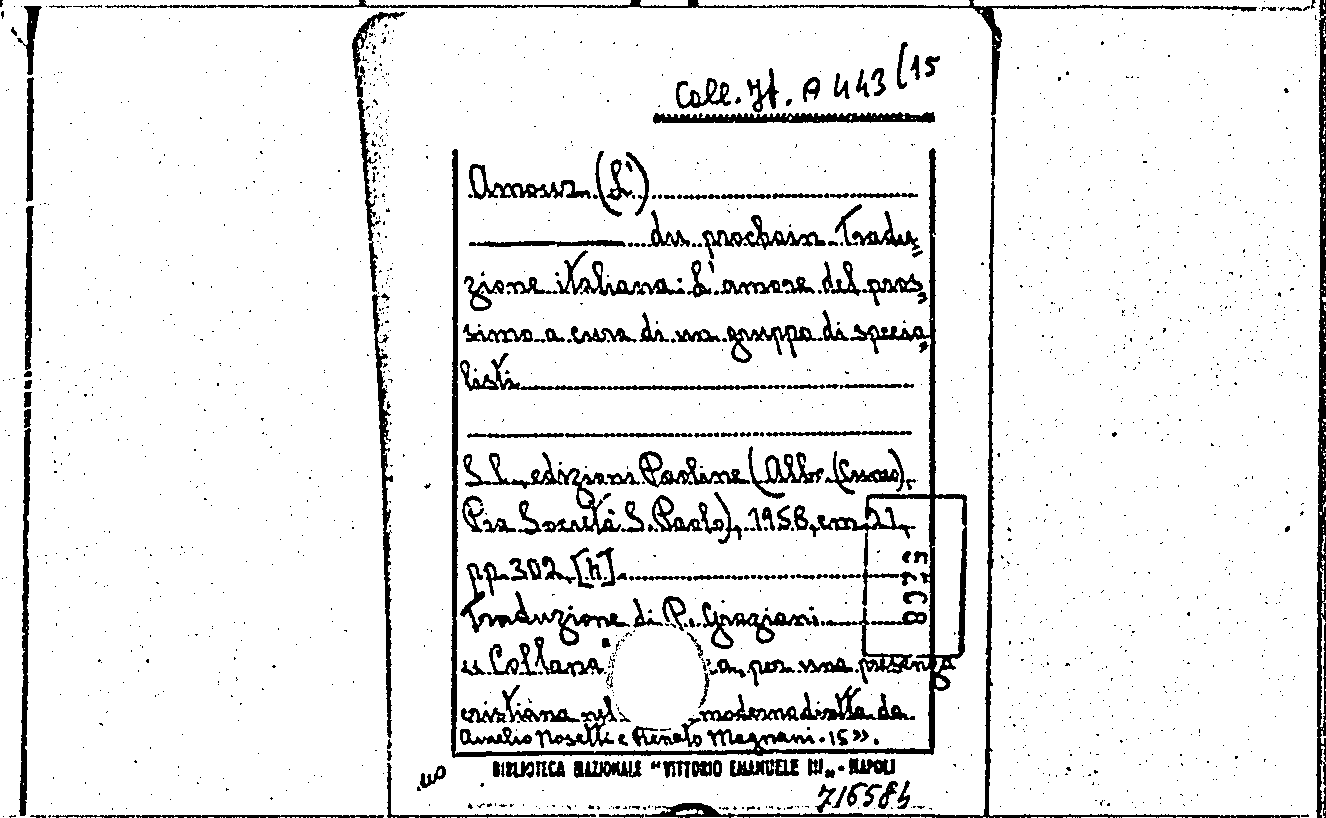 Coll. It. A 443 (15
Amour (L')
du prochain. Tradu=
zione italiana: L'amore del pros=
simo a cura di un gruppo di specia=
listi
S. l., edizioni Paoline (Alba (Cuneo),
Pia Società S. Paolo), 1958, cm. 21,
pp. 302. [h].
Traduzione di P. Graziani
« Collana a, per una presenza
cristiana nel moderna diretta da
Aurelio Nosetti e Renato Magnani. 15».
BIBLIOTECA NAZIONALE "VITTORIO EMANUELE III„ - NAPOLI